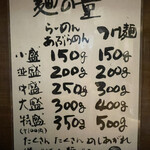 麺の量
らーめん つけ麺
あぶらめん
小盛 150g 150g
並盛 200g 200g
中盛 250g 300g
大盛 300g 400g
特盛 350g 500g
たくさん たくさん めしあがれ